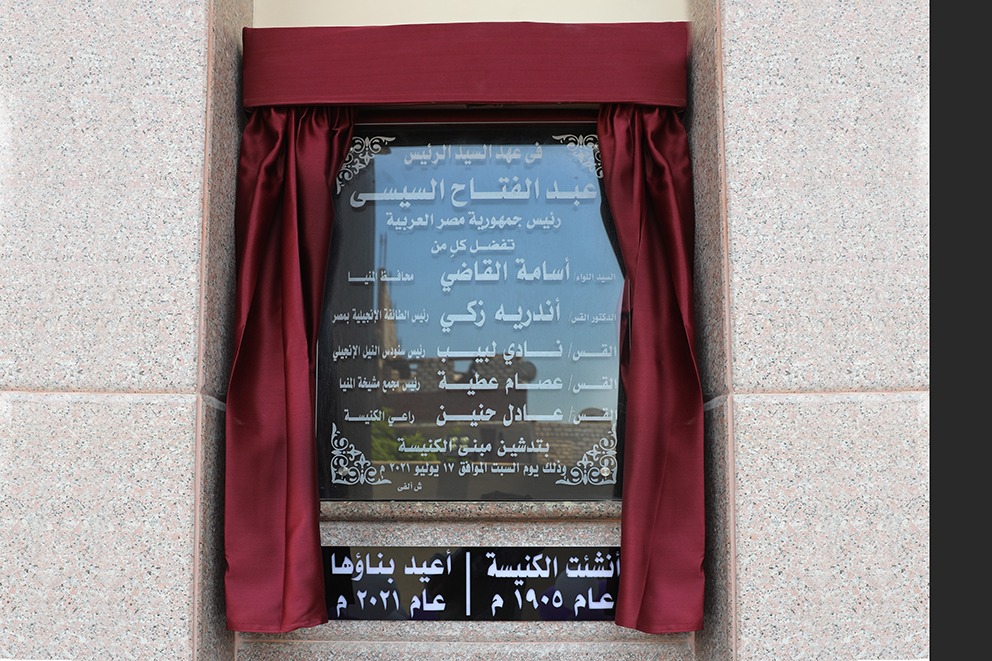 في عهد السيد الرئيس
عبد الفتاح السيسي
رئيس جمهورية مصر العربية
تفضل كل من
السيد اللواء/ أسامة القاضي محافظ المنيا
الدكتور القس/ أندريه زكي رئيس الطائفة الإنجيلية بمصر
القس/ نادي لبيب رئيس سنودس النيل الإنجيلي
القس/ عصام عطية رئيس مجمع مشيخة المنيا
القس/ عادل حنين راعي الكنيسة
بتدشين مبنى الكنيسة
وذلك يوم السبت الموافق ١٧ يوليو ٢٠٢١ م
ش ألفى
أنشئت الكنيسة | أعيد بناؤها
عام ١٩٠٥ م | عام ٢٠٢١ م